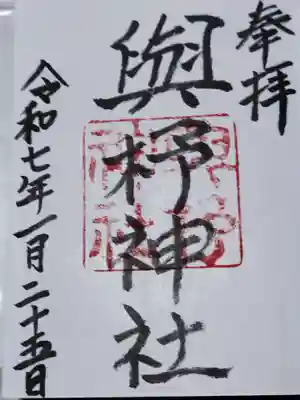 奉拝
與杼神社
令和七年一月二十五日